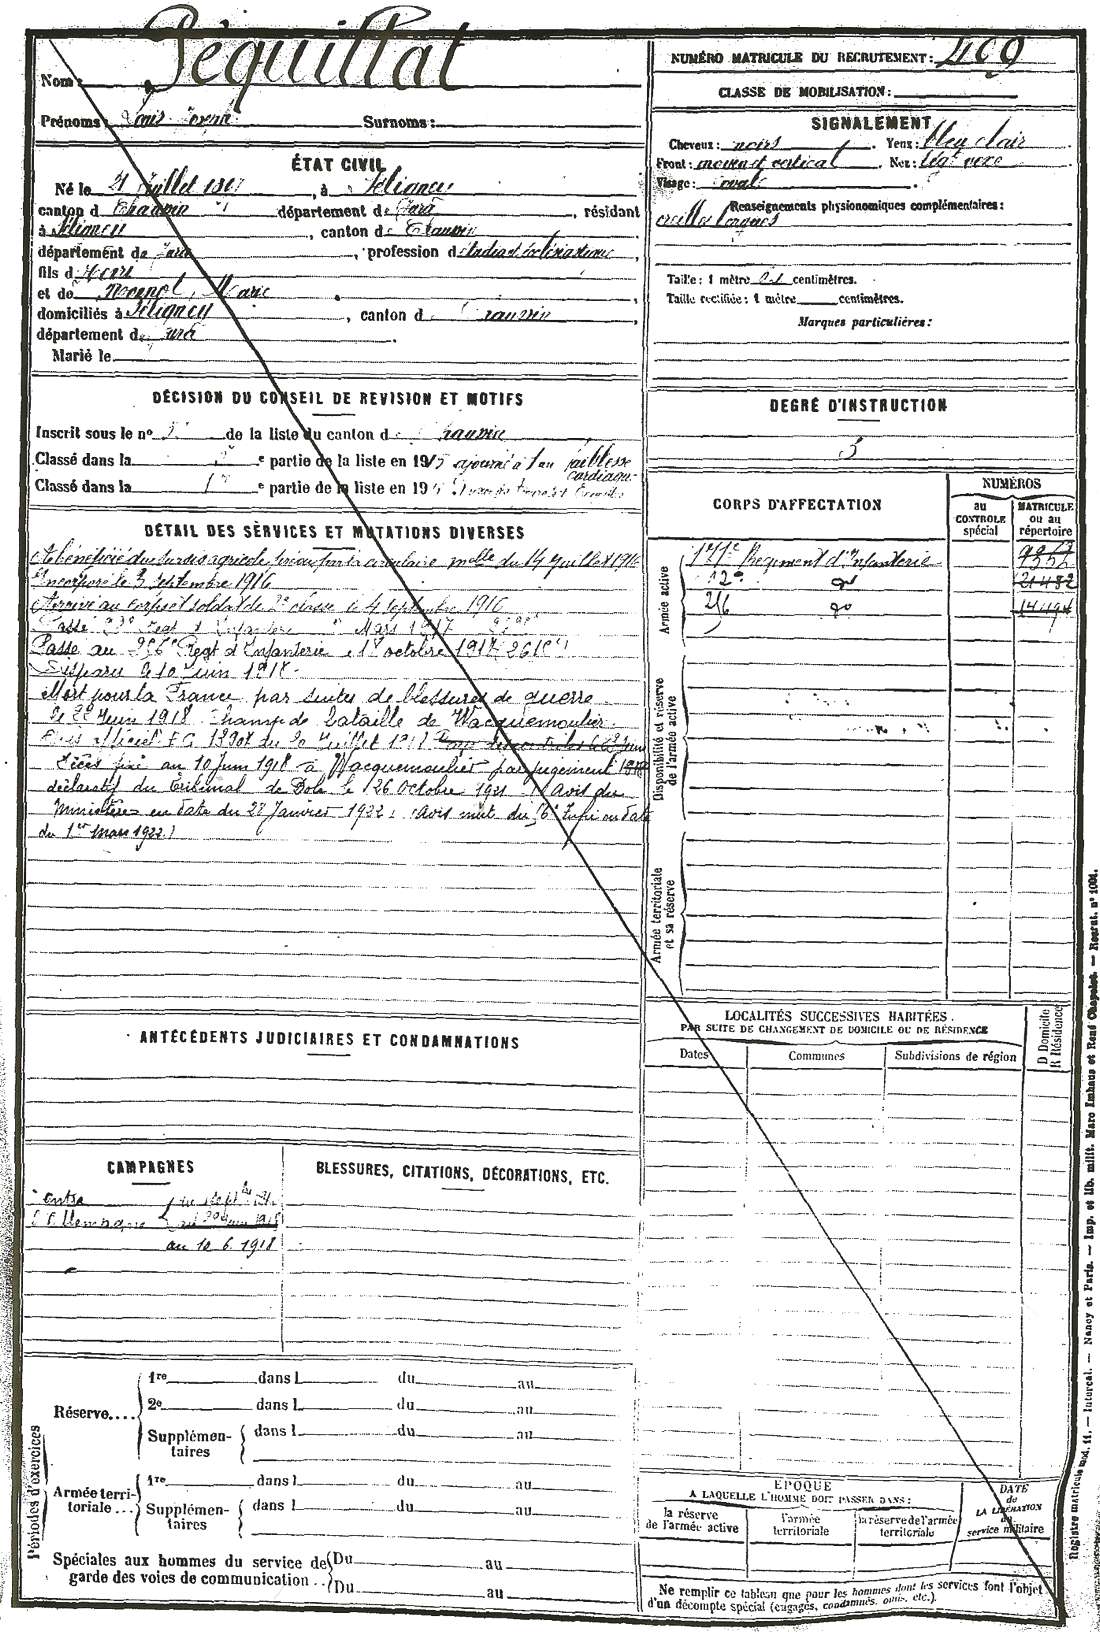 Nom : Péquillat
Prénoms : Louis Joseph Surnoms :
ÉTAT CIVIL
Né le 21 Juillet , à Séligney
canton d Chaussin département de Jura, résidant
à Séligney, canton d Chaussin
département de Jura, profession d étudiant ecclésiastique,
fils d Henri
et de , Marie
domiciliés à Séligney, canton d Chaussin,
département de Jura.
Marié le
DÉCISION DU CONSEIL DE REVISION ET MOTIFS
Inscrit sous le nº de la liste du canton d Chaussin
Classé dans la 5 e partie de la liste en 1915 ajourné à 1 an faiblesse
cardiaque
Classé dans la 1re e partie de la liste en 191
DÉTAIL DES SERVICES ET MUTATIONS DIVERSES
A bénéficié du sursis agricole suivant la circulaire melle du 14 Juillet 1916
Incorporé le 3 septembre 1916
Arrivé au corps et soldat de 2e classe le 4 septembre 1916
Passé Regt d'Infanterie Mars 1917
Passé au 256e Regt d'Infanterie 1er octobre 1917
Disparu le 10 Juin 1918
Mort pour la France par suites de blessures de guerre
le 22 Juin 1918 Champ de bataille de Wacquemoulin
Avis officiel F.G. du 20 Juillet
Décès fixé au 10 Juin 1918 à Wacquemoulin par jugement
déclaratif du Tribunal de Dole le 26 octobre 1921 (Avis du
Ministère en date du 27 Janvier 1922) (Avis mut. du Infie en date
du 1er Mars 1922)
ANTÉCÉDENTS JUDICIAIRES ET CONDAMNATIONS
CAMPAGNES
contre
l'Allemagne
au 10.6.1918
BLESSURES, CITATIONS, DÉCORATIONS, ETC.
Périodes d'exercices
Réserve....
1re dans l du au
2e dans l du au
Supplémen-
taires
dans l du au
Armée terri-
toriale ...
1re dans l du au
Supplémen-
taires
dans l du au
Spéciales aux hommes du service de
garde des voies de communication ..
Du au
Du au
NUMÉRO MATRICULE DU RECRUTEMENT : 409
CLASSE DE MOBILISATION :
SIGNALEMENT
Cheveux : noirs. Yeux : bleu clair
Front : moyen et vertical. Nez : légt vexe
Visage : ovale.
Renseignements physionomiques complémentaires :
oreilles longues
Taille : 1 mètre centimètres.
Taille rectifiée : 1 mètre centimètres.
Marques particulières :
DEGRÉ D'INSTRUCTION
3
CORPS D'AFFECTATION
NUMÉROS
au
CONTROLE
spécial
MATRICULE
ou au
répertoire
Armée active
171e Régiment d'Infanterie
12e do 21482
do 14494
Disponibilité et réserve
de l'armée active
Armée territoriale
et sa réserve
LOCALITÉS SUCCESSIVES HABITÉES.
PAR SUITE DE CHANGEMENT DE DOMICILE OU DE RÉSIDENCE
Dates
Communes
Subdivisions de région
D Domicile
R Résidence
ÉPOQUE
A LAQUELLE L'HOMME DOIT PASSER DANS :
la réserve
de l'armée active
l'armée
territoriale
la réserve de l'armée
territoriale
DATE
de
LA LIBÉRATION
du
service militaire
Ne remplir ce tableau que pour les hommes dont les services font l'objet
d'un décompte spécial (engagés, condamnés, omis, etc.).
Registre matricule mod. 11. — Intercal. — Nancy et Paris. — Imp. et lib. milit. Marc Imhaus et René Chapelot. — Recrut. nº 1004.